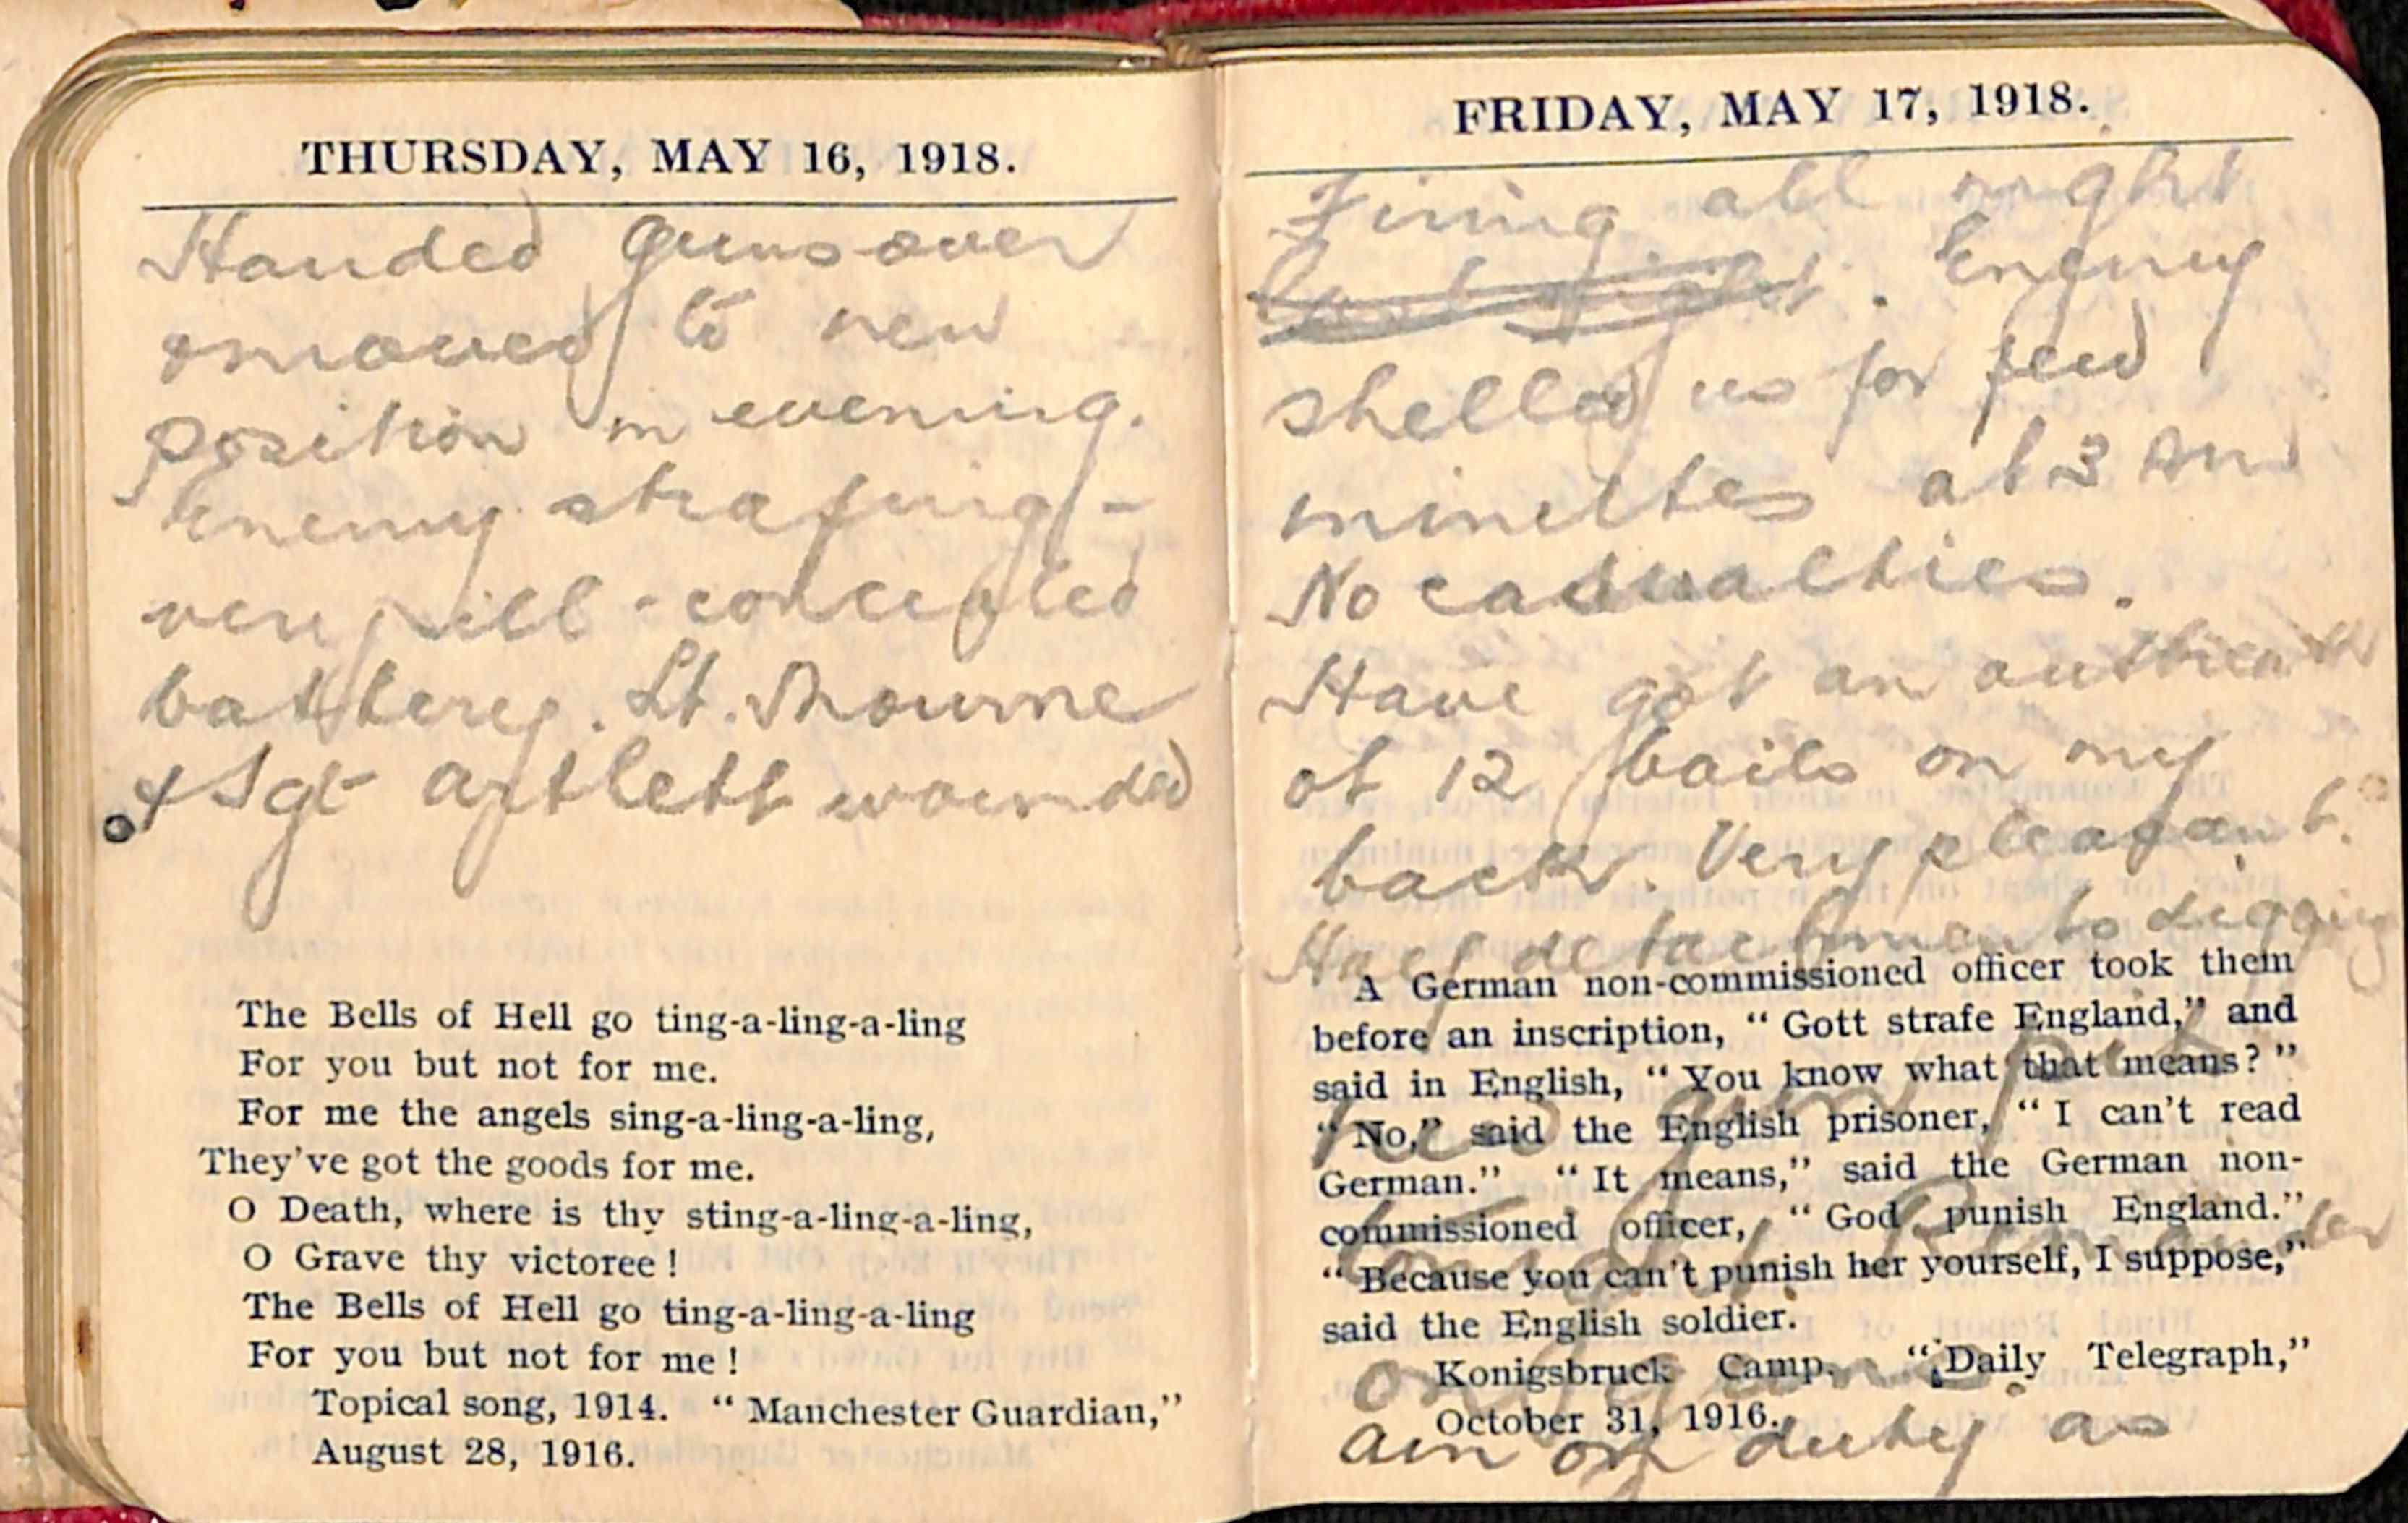 THURSDAY, MAY 16, 1918.
Handed guns over
& moved to new
position in evening.
Enemy strafing -
very ill-concealed
battery. Lt. Mourne
& Sgt Artlett wounded
The Bells of Hell go ting-a-ling-a-ling
For you but not for me.
For me the angels sing-a-ling-a-ling,
They've got the goods for me.
O Death, where is thy sting-a-ling-a-ling,
O Grave thy victoree !
The Bells of Hell go ting-a-ling-a-ling
For you but not for me !
Topical song, 1914. “ Manchester Guardian,”
August 28, 1916.
FRIDAY, MAY 17, 1918.
Firing all night
last night. Enemy
shelled us for few
minutes at 3 am
No casualties.
Have got an
of 12 boils on my
back. Very pleasant.
Half detachments digging
new gun pit
tonight. Remainder
on guns.
am on duty as
A German non-commissioned officer took them
before an inscription, “ Gott strafe England,” and
said in English, “ You know what that means? ”
“ No,” said the English prisoner, “ I can't read
German.” “ It means,” said the German non-
commissioned officer, “ God punish England.”
“ Because you can't punish her yourself, I suppose,”
said the English soldier.
Konigsbruck Camp. “ Daily Telegraph,”
October 31, 1916.